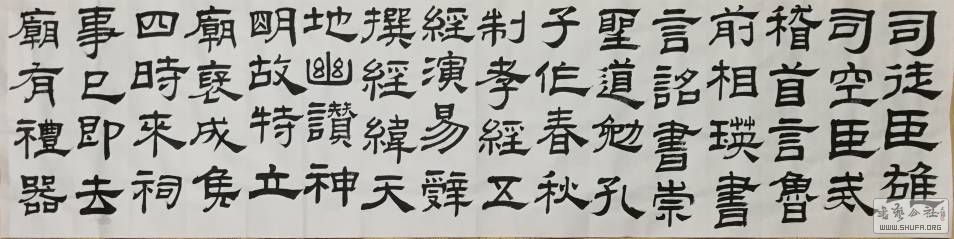 司徒臣雄
司空臣戒
稽首言魯
前相瑛書
言詔書崇
聖道勉孔
子作春秋
制孝經五
經演易辭
撰經緯天
地幽讚神
明故特立
廟褒成侯
四時來祠
事已即去
廟有禮器
书艺公社
WWW.SHUFA.ORG